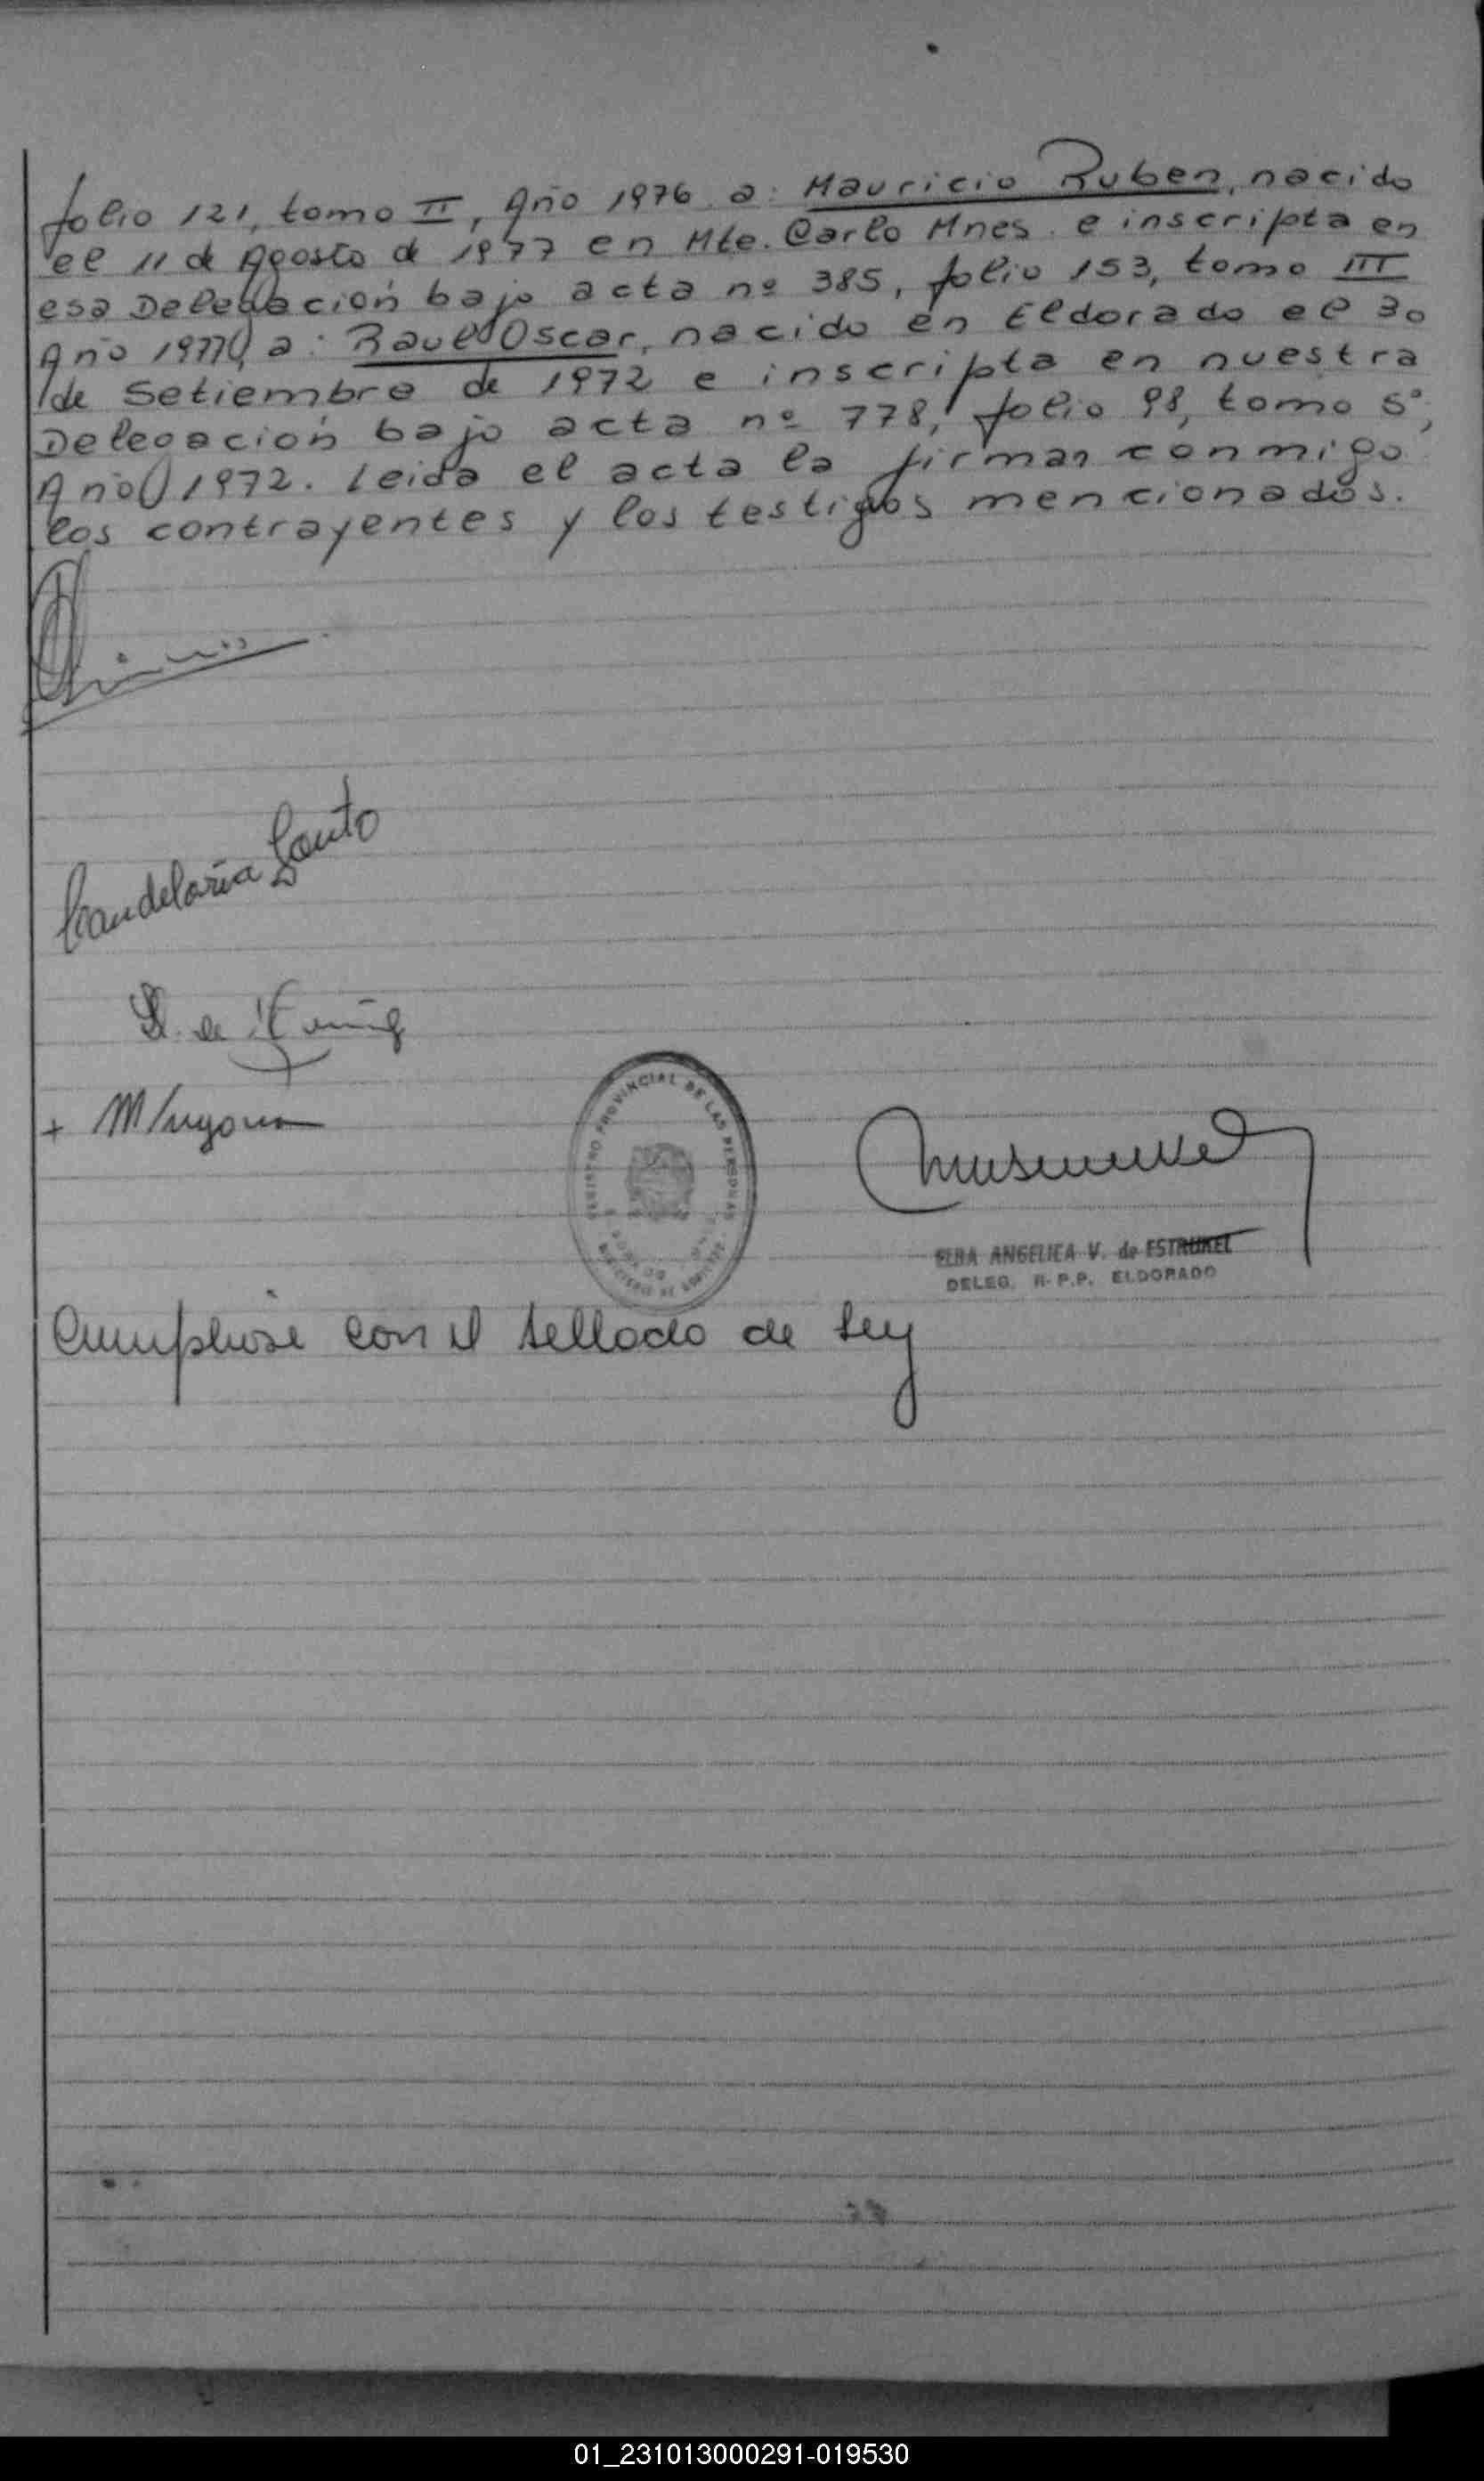 folio 121, tomo II, Año 1976. a: Mauricio Ruben, nacido
el 11 de Agosto de 1977 en Mte. Carlo Mnes. e inscripta en
esa Delegación bajo acta nº 385, folio 153, tomo III
Año 1977, a: Raul Oscar, nacido en Eldorado el 30
de Setiembre de 1972 e inscripta en nuestra
Delegación bajo acta nº 778, folio 98, tomo 5º,
Año 1972. Leida el acta la firman conmigo
los contrayentes y los testigos mencionados.
Candelaria Souto
REGISTRO PROVINCIAL DE LAS PERSONAS
ELBA ANGELICA V. de ESTRUKEL
DELEG. R. P.P. ELDORADO
Cumpliose con el sellado de Ley
01_231013000291-019530